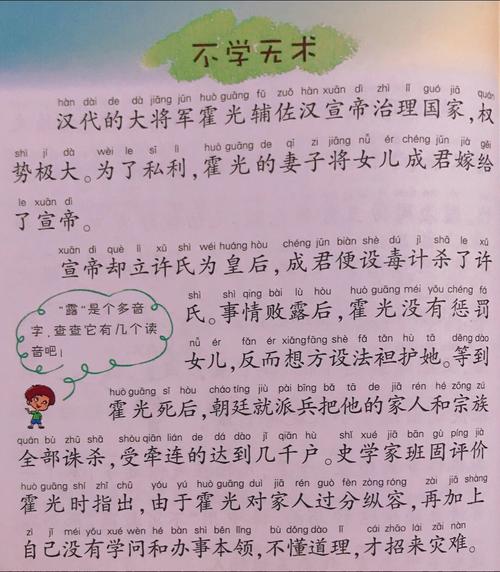 不学无术
hàn dài de dà jiāng jūn huò guāng fǔ zuǒ hàn xuān dì zhì lǐ guó jiā quán
汉代的大将军霍光辅佐汉宣帝治理国家，权
shì jí dà wèi le sī lì huò guāng de qī zi jiāng nǚ ér chéng jūn jià gěi
势极大。为了私利，霍光的妻子将女儿成君嫁给
le xuān dì
了宣帝。
xuān dì què lì xǔ shì wéi huáng hòu chéng jūn biàn shè dú jì shā le xǔ
宣帝却立许氏为皇后，成君便设毒计杀了许
shì shì qing bài lù hòu huò guāng méi yǒu chéng fá
氏。事情败露后，霍光没有惩罚
nǚ ér fǎn ér xiǎng fāng shè fǎ tǎn hù tā děng dào
女儿，反而想方设法袒护她。等到
huò guāng sǐ hòu cháo tíng jiù pài bīng bǎ tā de jiā rén hé zōng zú
霍光死后，朝廷就派兵把他的家人和宗族
quán bù zhū shā shòu qiān lián de dá dào jǐ qiān hù shǐ xué jiā bān gù píng jià
全部诛杀，受牵连的达到几千户。史学家班固评价
huò guāng shí zhǐ chū yóu yú huò guāng duì jiā rén guò fèn zòng róng zài jiā shàng
霍光时指出，由于霍光对家人过分纵容，再加上
zì jǐ méi yǒu xué wèn hé bàn shì běn lǐng bù dǒng dào lǐ cái zhāo lái zāi nàn
自己没有学问和办事本领，不懂道理，才招来灾难。
“露”是个多音
字，查查它有几个读
音吧！